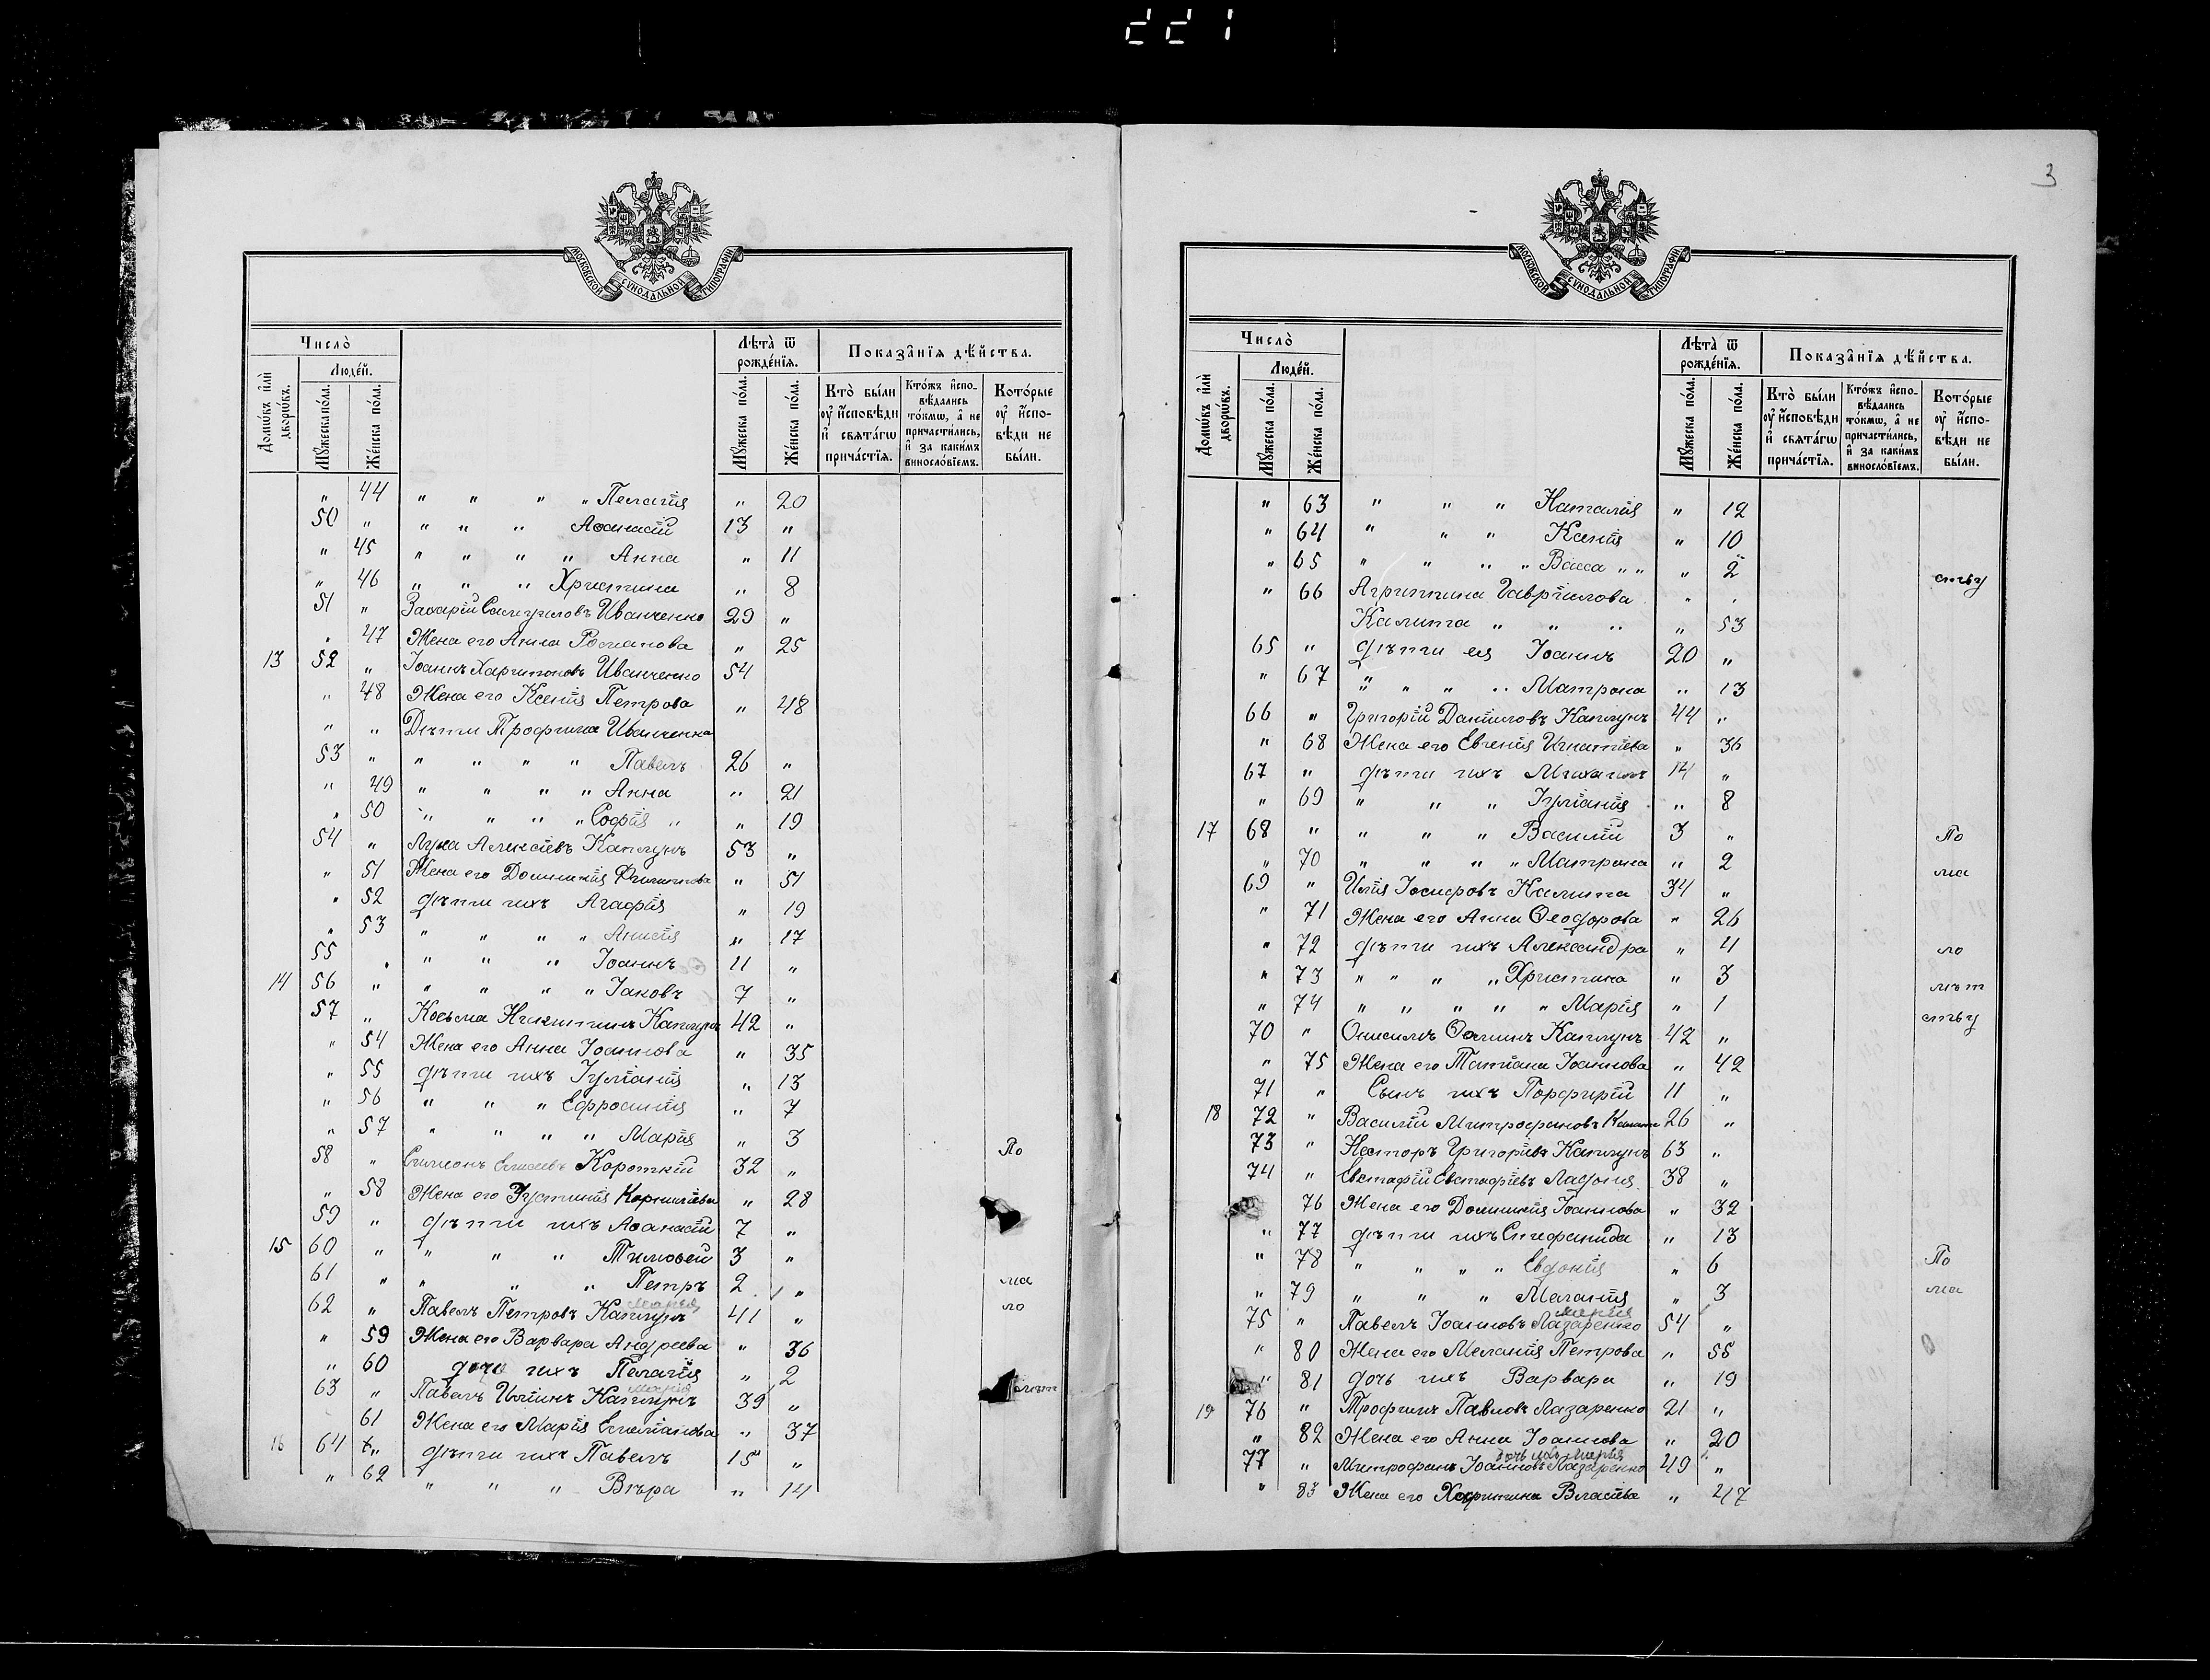 221
3
МОСКОВСКОЙ СѴНОДАЛЬНОЙ ТИПОГРАФІИ
Число̀
Лѣта̀ ѿ рожде́нїѧ.
Показа̑нїѧ дѣ́йства.
Домѡ́въ и҆лѝ дворѡ́въ.
Люде́й.
Мꙋ́жеска по́ла.
Же́нска по́ла.
Мꙋ́жеска по́ла.
Же́нска по́ла.
Кто̀ бы́ли ᲂу҆ и҆́сповѣди и҆ свята́гѡ прича́стїѧ.
Кто́жъ и҆спо-вѣ́дались то́кмѡ, а҆ не причасти́лись, и҆ за каки́мъ винослов́їемъ.
Кото́рые ᲂу҆ и҆́спо-вѣди не бы́ли.
" 44 " " " " Пелагія " 20
50 " " " " Аѳанасій 13 "
" 45 " " " " Анна " 11
" 46 " " " Христина " 8
51 " Захарій Иванченко 29 "
" 47 Жена его Анна Романова " 25
13 52 " Іоаннъ Харитоновъ Иванченко 54
" 48 Жена его Ксенія Петрова " 48
" " Дѣти Трофима Иванченка
53 " " " " " Павелъ 26 "
" 49 " " " " Анна " 21
" 50 " " " " Софія " " 19
54 " Лука Алексіевъ Каплунъ 53 "
" 51 Жена его Домникія Филиппова " 51
" 52 дѣти ихъ Агафія " 19
" 53 " " " " Анисія " 17
55 " " " " Іоаннъ 11 "
14 56 " " " " " Іаковъ 7 "
57 " Косьма Никитинъ Каплунъ 42 "
" 54 Жена его Анна Іоаннова " 35
" 55 дѣти ихъ Іуліанія " 13
" 56 " " " Ефросинія " 7
" 57 " " " " Марія " 3
58 " Симеонъ Елисеевъ Короткій 32 " По
" 58 Жена его Іустинія Корниліева " 28
59 " дѣти ихъ Аѳанасій 7 "
15 60 " " " " Тимоѳей 3 "
61 " " " " Петръ 2 " ма
62 " Павелъ Петровъ Каплунъ 41 " ло
Марія
" 59 Жена его Варвара Андреева " 36
" 60 дочь ихъ Пелагія " 2
63 " Павелъ Иліинъ Каплунъ 39 " лѣт
Марія
61 Жена его Марія Емеліанова " 37
16 64 " дѣти ихъ Павелъ 15 "
" 62 " " " Вѣра " 14
Число̀
Лѣта̀ ѿ рожде́нїѧ.
Показа̑нїѧ дѣ́йства.
Домѡ́въ и҆лѝ дворѡ́въ.
Люде́й.
Мꙋ́жеска по́ла.
Же́нска по́ла.
Мꙋ́жеска по́ла.
Же́нска по́ла.
Кто̀ бы́ли ᲂу҆ и҆́сповѣди и҆ свята́гѡ прича́стїѧ.
Кто́жъ и҆спо-вѣ́дались то́кмѡ, а҆ не причасти́лись, и҆ за каки́мъ винослов́їемъ.
Кото́рые ᲂу҆ и҆́спо-вѣди не бы́ли.
МОСКОВСКОЙ СѴНОДАЛЬНОЙ ТИПОГРАФІИ
" 63 " " " Наталія " 12
" 64 " " " Ксенія " 10
" 65 " " " " Васса " " " 2 ству
" 66 Агриппина Гавріилова " "
Калита " " " " 53
65 " дѣти ея Іоаннъ 20 "
" 67 " " " " Матрона " 13
66 " Григорій Даніиловъ Каплунъ 44 "
" 68 Жена его Евгенія Игнатіева " 36
67 " дѣти ихъ Михаилъ 14 "
" 69 " " " Іуліанія " 8
17 68 " " " " Василій 3 " По
" 70 " " " " Матрона " 2 ма
69 " Илія Іосифовъ Калита 34 "
" 71 Жена его Анна Ѳеодорова " 26
" 72 дѣти ихъ Александра " 4 ло
" 73 " " " " Христина " 3 лѣт
" 74 " " " " " Марія " 1 ству
70 " Онисимъ Ѳоминъ Каплунъ 42 "
" 75 Жена его Татіана Іоаннова " 42
71 " Сынъ ихъ Порфирій 11 "
18 72 " Василій Митрофановъ Калита 26 "
73 " Несторъ Григоріевъ Каплунъ 63 "
74 " Евстафій Евстафіевъ Ладоня 38 "
76 Жена его Домникія Іоаннова " 32
" 77 дѣти ихъ Стефанида " 13
" 78 " " " " Евдокія " 6 По
" 79 " " " Маланія " 3 ма
75 " Павелъ Іоанновъ Лазаренко 54 "
Марія
" 80 Жена его Меланія Петрова " 55
" 81 дочь ихъ Варвара " 19
19 76 " Трофимъ Павловъ Лазаренко 21 "
" 82 Жена его Анна Іоаннова " 20
дочь ихъ Марья
77 " Митрофанъ Іоанновъ Лазаренко 49 "
" 83 Жена его Харитина Власіева " 47